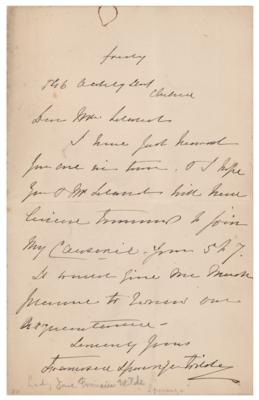 146 Oakley Street
Chelsea
Dear Mrs Leland
I have just heard
you are in town. & I hope
you & Mr Leland will have
leisure tomorrow to join
My Causerie. from 5 to 7.
It would give me much
pleasure to renew our
acquaintance—
Sincerely Yours
Francesca Speranza Wilde
Lady Jane Francisca Wilde